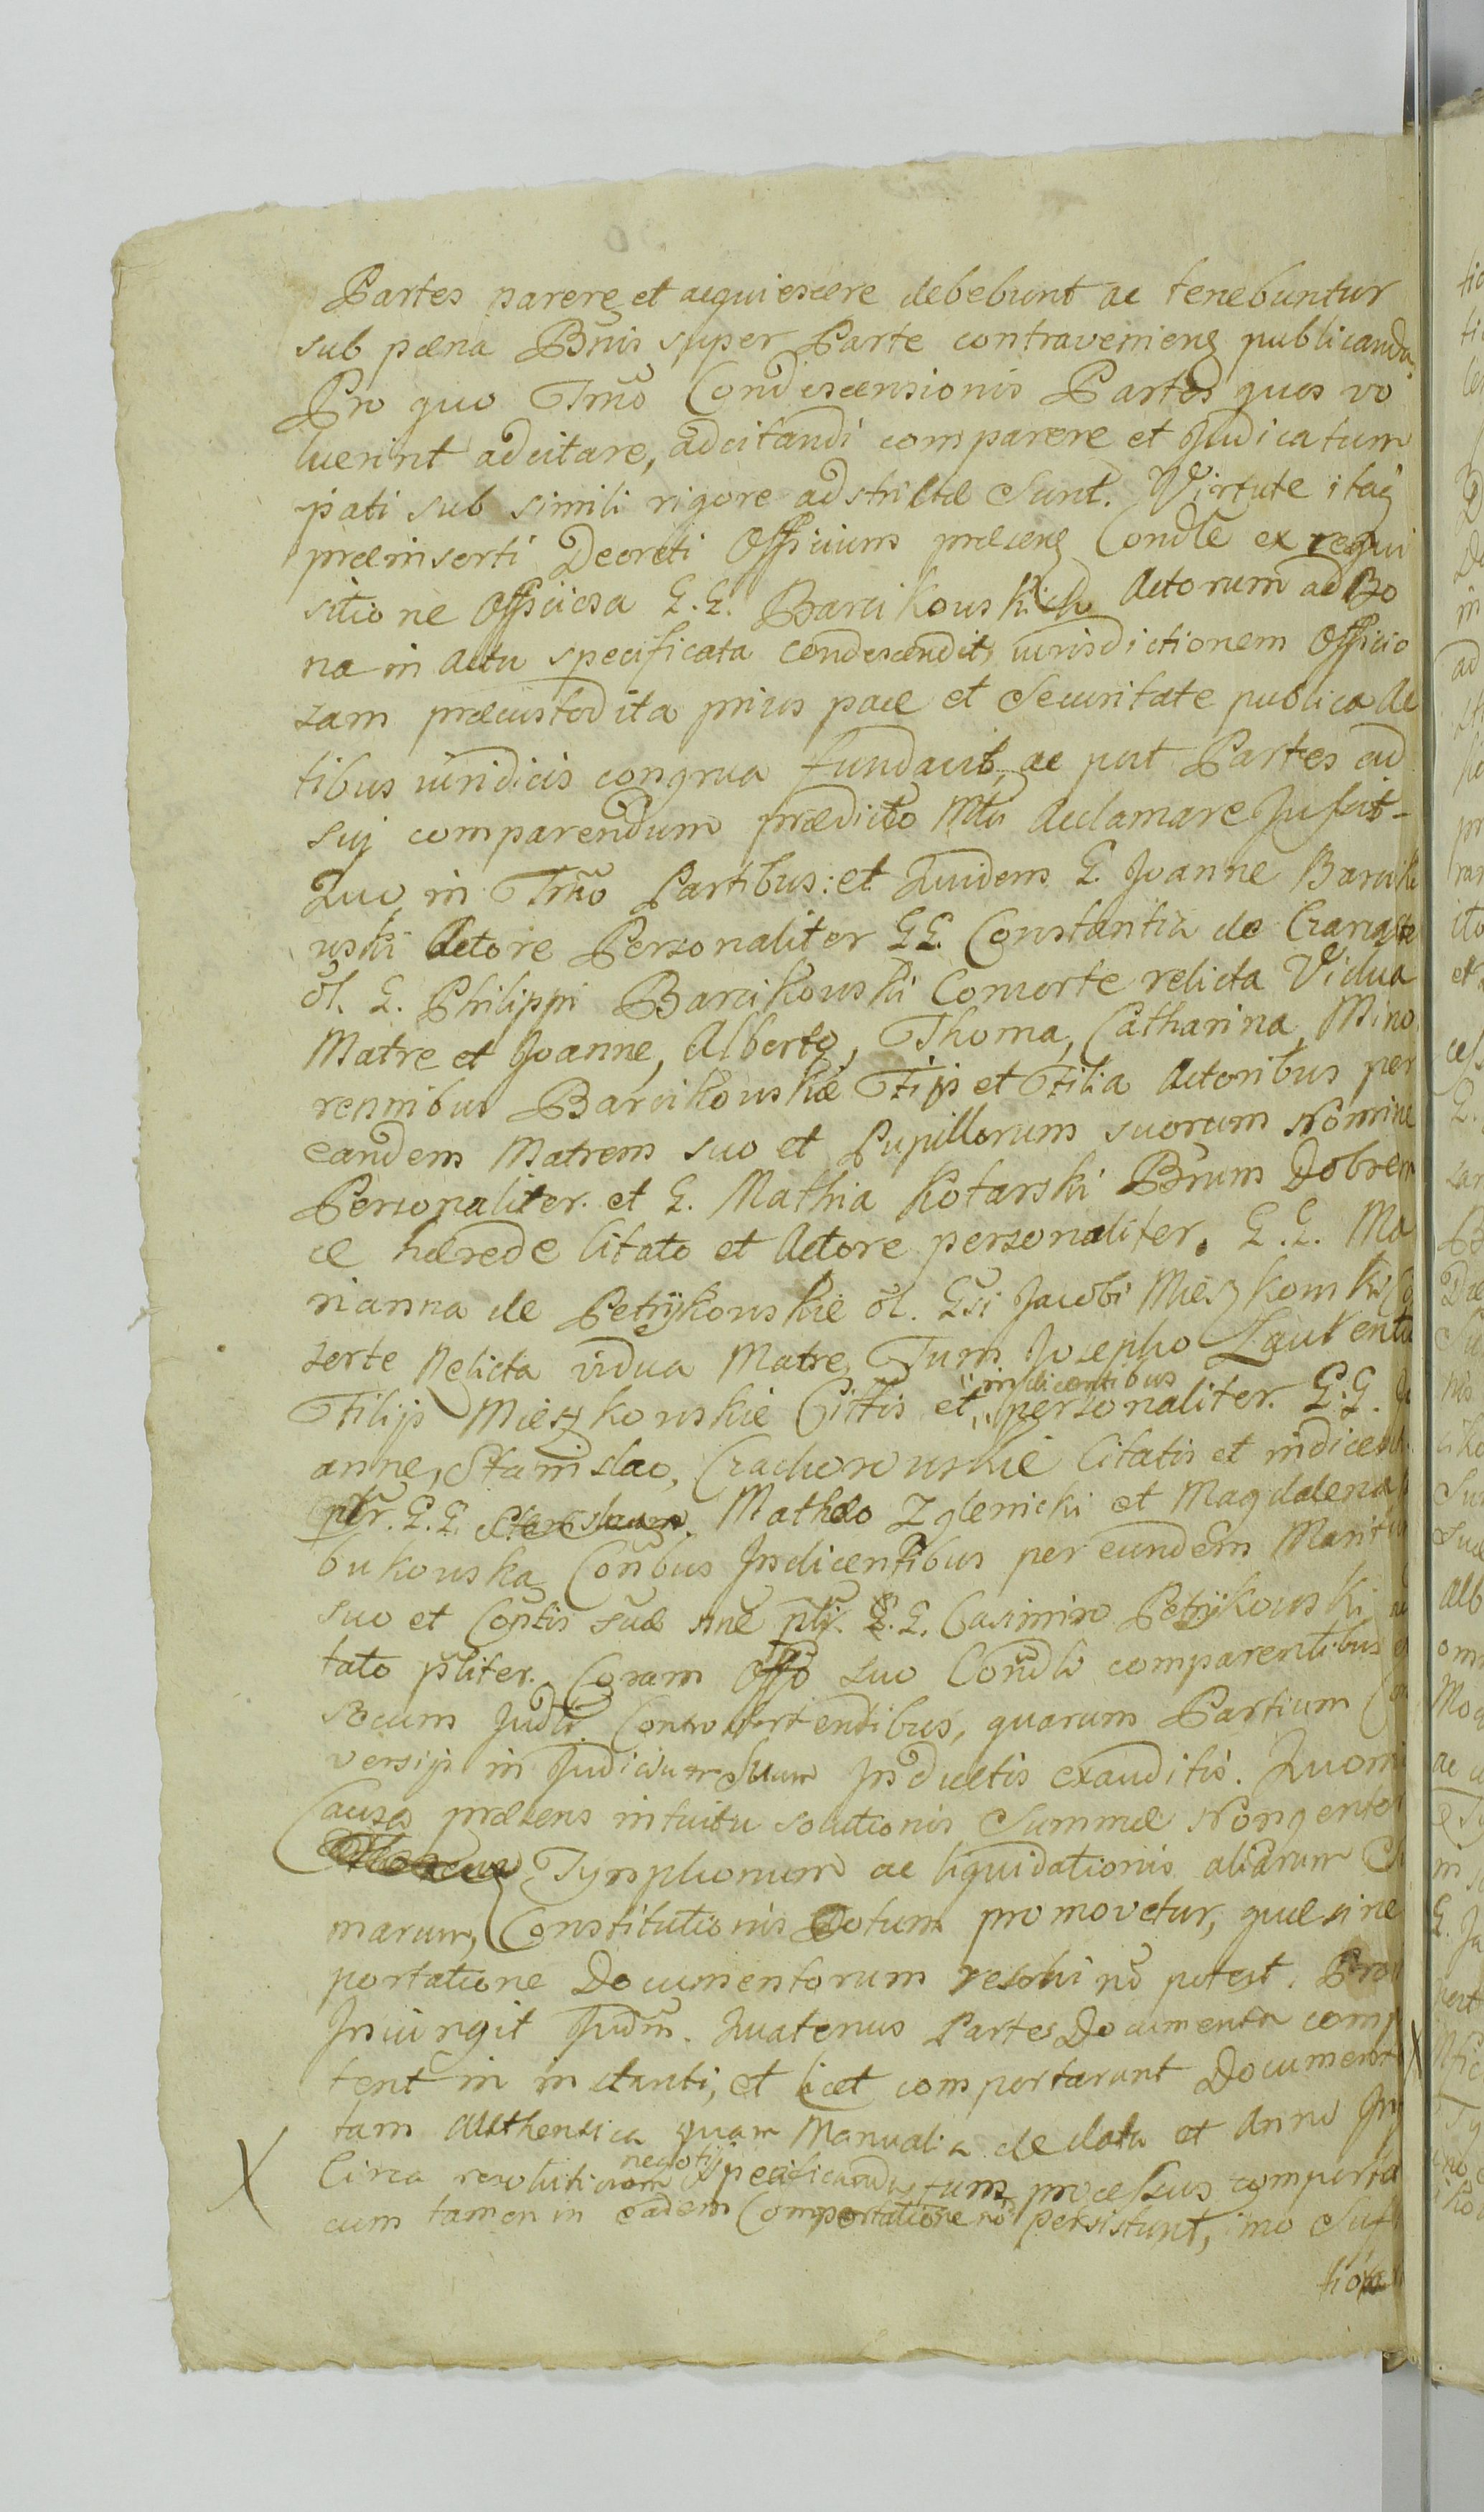 Partes parere et acquiescere debebunt ac tenebuntur
sub pœna Bnis super Parte contraveniens publicanda
Pro quo Trno Condescensionis Partes quos vo
luerint adcitare, adcitandi comparere et Judicatum
pati sub simili rigore adstrictæ sunt. Virtute itaq
præinserti Decreti Officium præsens Condle ex requi
sitione Officiosa G.G. Barcikouskich Actorum ad Bo
na in Actu specificata condescendit, iurisdictionem Officio
sam præcustodita prius pace et securitate publica Ac
tibus iuridicis congrua fundavit, ac post Partes ad
sui comparendum prædicto Mtu Acclamare Jussit-
Quo in Trno Partibus: et Quidem G. Joanne Barciko
uski Actore Personaliter GG. Constantia de
ol. G. Philippi Barcikouski Consorte relicta Vidua
Matre et Joanne, Alberto, Thoma, Catharina Mino
rennibus Barcikouskie Filijs et Filia Actoribus per
eandem Matrem suo et Pupillorum suorum Nomine
Personaliter. et G. Mathia Kotarski Bnrum Dobrem
ce hærede Citato et Actore personaliter. G.G. Ma
rianna de Petrykouskie ol. Gsi Jacobi Mieszkowski Co
sorte Relicta vidua Matre, Tum Josepho Laurentio
Filijs Mieszkouskie Cittis et indicentibus personaliter. G.G. Jo
anne, Stanislao, Czachorouskie Citatis et indicentib
plr. G.G. Stanislaum. Mathæo Zglenicki et Magdalena
bukouska Conbus Indicentibus per eundem Maritum
suo et Contis suæ nne plr. G.G. Casimiro Petrykouski
tato pliter. Coram Offo suo Condli comparentibus et
secum Judlr Controvertentibus, quarum Partium Con
versijs in Judicium suum Inductis exauditis. Quoni
Causa præsens intuitu solutionis Summæ Nongento
Tymphonum ac liquidationis aliarum
marum, Constitutionis Dotum promovetur, quæ sine
portatione Documentorum resolvi no potest. Pro
Iniungit Judm. Quatenus Partes Documenta comp
tent in instanti, et licet comportarunt Document
tam Authentica quam Manualia de data et Anno In
Circa resolutionem negotij specificand tum processus comporta
cum tamen in eadem Comportatione no persistunt, imo Suf